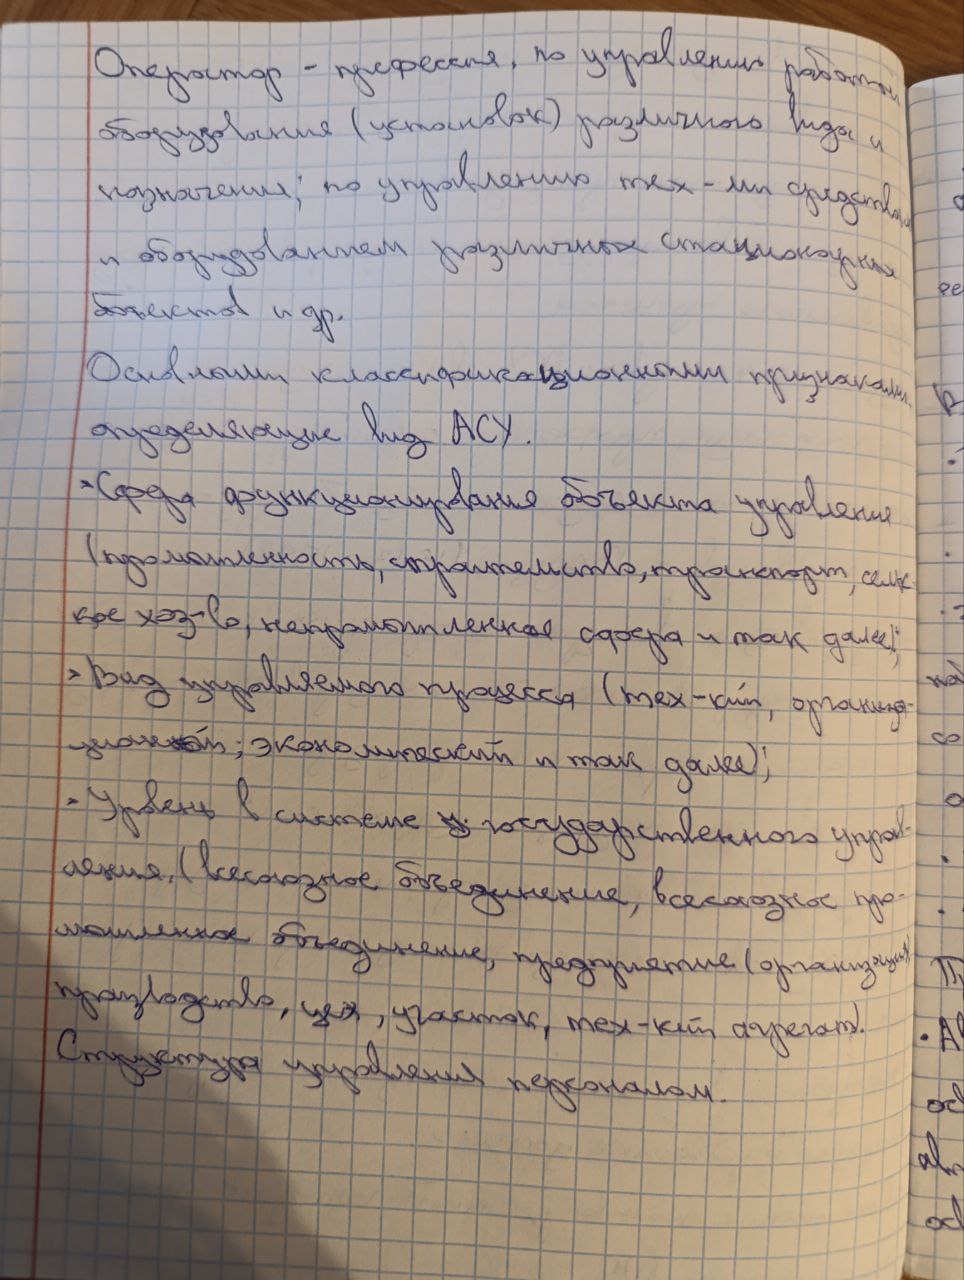 Оператор - профессия, по управлению работой
оборудования (установок) различного вида и
назначения; по управлению тех-ми средствами
и оборудованием различных стационарных
объектов и др.
Основными классификационными признаками,
определяющие вид АСУ.
• Сфера функционирования объекта управления
(промышленность, строительство, транспорт, сельс-
кое хоз-во, непромышленная сфера и так далее);
• Вид управляемого процесса (тех-кий, организа-
ционный; экономический и так далее);
• Уровень в системе государственного управ-
ления, (всесоюзное объединение, всесоюзное про-
мышленное объединение, предприятие (организация)
производство, цех, участок, тех-кий агрегат).
Структура управления персоналом.